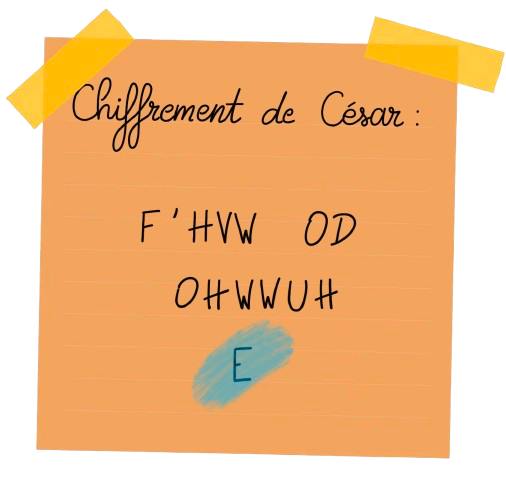 Chiffrement de César :
F'HVW OD
OHWWUH
E